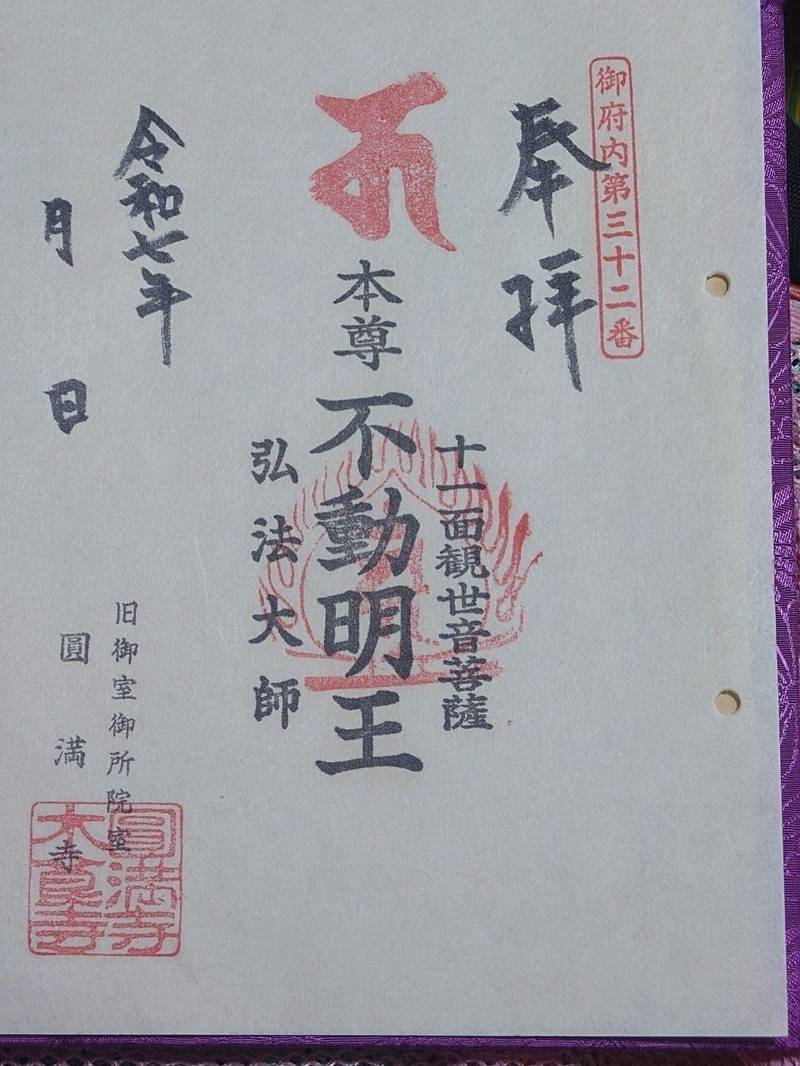 御府内第三十二番
奉拝
十一面観世音菩薩
本尊 不動明王
弘法大師
令和七年
月 日
旧御室御所院室
圓満寺
圓満寺